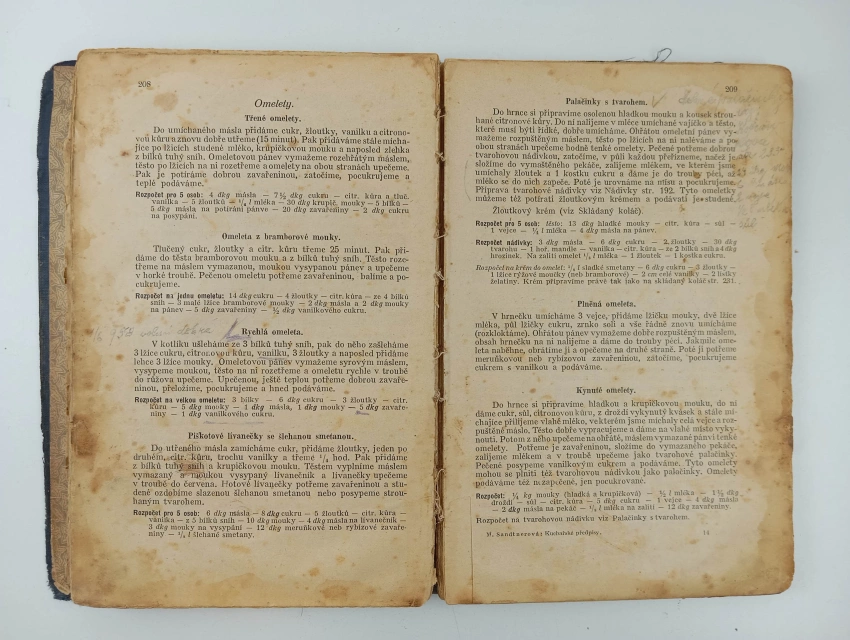 208
Omelety.
Třené omelety.
Do umíchaného másla přidáme cukr, žloutky, vanilku a citrono-
vou kůru a znovu dobře utřeme (15 minut). Pak přidáváme stále mícha-
jíce po lžících studené mléko, krupičkovou mouku a naposled zlehka
z bílků tuhý sníh. Omeletovou pánev vymažeme rozehřátým máslem,
těsto po lžících na ni rozetřeme a omelety na obou stranách upečeme.
Pak je potíráme dobrou zavařeninou, zatočíme, pocukrujeme a
teplé podáváme.
Rozpočet pro 5 osob: 4 dkg másla — 7½ dkg cukru — citr. kůra a tluč.
vanilka — 5 žloutků — ¼ l mléka — 30 dkg krupič. mouky — 5 bílků —
5 dkg másla na potírání pánve — 20 dkg zavařeniny — 2 dkg cukru
na posypání.
Omeleta z bramborové mouky.
Tlučený cukr, žloutky a citr. kůru třeme 25 minut. Pak při-
dáme do těsta bramborovou mouku a z bílků tuhý sníh. Těsto roze-
třeme na máslem vymazanou, moukou vysypanou pánev a upečeme
v horké troubě. Pečenou omeletu potřeme zavařeninou, balíme a po-
cukrujeme.
Rozpočet na jednu omeletu: 14 dkg cukru — 4 žloutky — citr. kůra — ze 4 bílků
sníh — 3 malé lžíce bramborové mouky — 2 dkg másla a 2 dkg mouky
na pánev — 5 dkg zavařeniny — ½ dkg vanilkového cukru.
dobře
Rychlá omeleta.
V kotlíku ušleháme ze 3 bílků tuhý sníh, pak do něho zašleháme
3 lžíce cukru, citronovou kůru, vanilku, 3 žloutky a naposled přidáme
lehce 3 lžíce mouky. Omeletovou pánev vymažeme syrovým máslem,
vysypeme moukou, těsto na ni rozetřeme a omeletu rychle v troubě
do růžova upečeme. Upečenou, ještě teplou potřeme dobrou zavaře-
ninou, přeložíme, pocukrujeme a hned podáváme.
Rozpočet na velkou omeletu: 3 bílky — 6 dkg cukru — 3 žloutky — citr.
kůru — 5 dkg mouky — 1 dkg másla, 1 dkg mouky — 5 dkg zavaře-
niny — 1 dkg vanilkového cukru.
Piškotové lívanečky se šlehanou smetanou.
Do utřeného másla zamícháme cukr, přidáme žloutky, jeden po
druhém, citr. kůru, trochu vanilky a třeme ¼ hod. Pak přidáme
z bílků tuhý sníh a krupičkovou mouku. Těstem vyplníme máslem
vymazaný a moukou vysypaný lívanečník a lívanečky upečeme
v troubě do červena. Hotové lívanečky potřeme zavařeninou a stu-
dené ozdobíme slazenou šlehanou smetanou nebo posypeme strou-
haným tvarohem.
Rozpočet pro 5 osob: 6 dkg másla — 8 dkg cukru — 5 žloutků — citr. kůra —
vanilka — z 5 bílků sníh — 10 dkg mouky — 4 dkg másla na lívanečník —
3 dkg mouky na vysypání — 12 dkg meruňkové neb rybízové zavaře-
niny — ¼ l šlehané smetany.
209
Palačinky s tvarohem.
Do hrnce si připravíme osolenou hladkou mouku a kousek strou-
hané citronové kůry. Do ní nalijeme v mléce umíchané vajíčko a těsto,
které musí býti řídké, dobře umícháme. Ohřátou omeletní pánev vy-
mažeme rozpuštěným máslem, těsto po lžících na ni naléváme a po
obou stranách upečeme hodně tenké omelety. Pečené potřeme dobrou
tvarohovou nádivkou, zatočíme, v půli každou přeřízneme, načež je
složíme do vymaštěného pekáče, zalijeme mlékem, ve kterém jsme
umíchaly žloutek a 1 kostku cukru a dáme je do trouby péci, až
mléko se do nich zapeče. Poté je urovnáme na mísu a pocukrujeme.
Příprava tvarohové nádivky viz Nádivky str. 192. Tyto omeletky
můžeme též potírati žloutkovým krémem a podávati je studené.
Žloutkový krém (viz Skládaný koláč).
Rozpočet pro 5 osob: těsto: 13 dkg hladké mouky — citr. kůra — sůl —
1 vejce — ½ l mléka — 4 dkg másla na pánev.
Rozpočet nádivky: 3 dkg másla — 6 dkg cukru — 2 žloutky — 30 dkg
tvarohu — 1 hoř. mandle — vanilka — citr. kůra — ze 2 bílků sníh a 4 dkg
hrozinek. Na zalití omelet ¼ l mléka — 1 žloutek — 1 kostka cukru.
Rozpočet na krém do omelet: ¼ l sladké smetany — 6 dkg cukru — 3 žloutky —
1 lžíce rýžové mouky (neb bramborové) — 2 cm celé vanilky — 2 lístky
želatiny. Krém připravíme právě tak jako na skládaný koláč str. 231.
Plněná omeleta.
V hrnečku umícháme 3 vejce, přidáme lžičku mouky, dvě lžíce
mléka, půl lžičky cukru, zrnko soli a vše řádně znovu umícháme
(rozkloktáme). Ohřátou pánev vymažeme dobře rozpuštěným máslem,
obsah hrnečku na ni nalijeme a dáme do trouby péci. Jakmile ome-
leta naběhne, obrátíme ji a opečeme na druhé straně. Poté ji potřeme
meruňkovou neb rybízovou zavařeninou, zatočíme, pocukrujeme
cukrem s vanilkou a podáváme.
Kynuté omelety.
Do hrnce si připravíme hladkou a krupičkovou mouku, do ní
dáme cukr, sůl, citronovou kůru, z droždí vykynutý kvásek a stále mí-
chajíce přilijeme vlahé mléko, ve kterém jsme míchaly celá vejce a roz-
puštěné máslo. Těsto dobře vypracujeme a dáme na vlahé místo vyky-
nouti. Potom z něho upečeme na ohřáté, máslem vymazané pánvi tenké
omelety. Potřeme je zavařeninou, složíme do vymazaného pekáče,
zalijeme mlékem a v troubě upečeme jako tvarohové palačinky.
Pečené posypeme vanilkovým cukrem a podáváme. Tyto omelety
mohou se plniti též tvarohovou nádivkou jako palačinky. Omelety
podáváme též nezapečené, jen pocukrované.
Rozpočet: ¼ kg mouky (hladká a krupičková) — ½ l mléka — 1½ dkg
droždí — sůl — citr. kůra — 5 dkg cukru — 1 vejce — 4 dkg másla
— 2 dkg másla na pekáč — ¼ l mléka na zalití — 12 dkg zavařeniny.
Rozpočet na tvarohovou nádivku viz Palačinky s tvarohem.
M. Sandtnerová: Kuchařské předpisy.
14